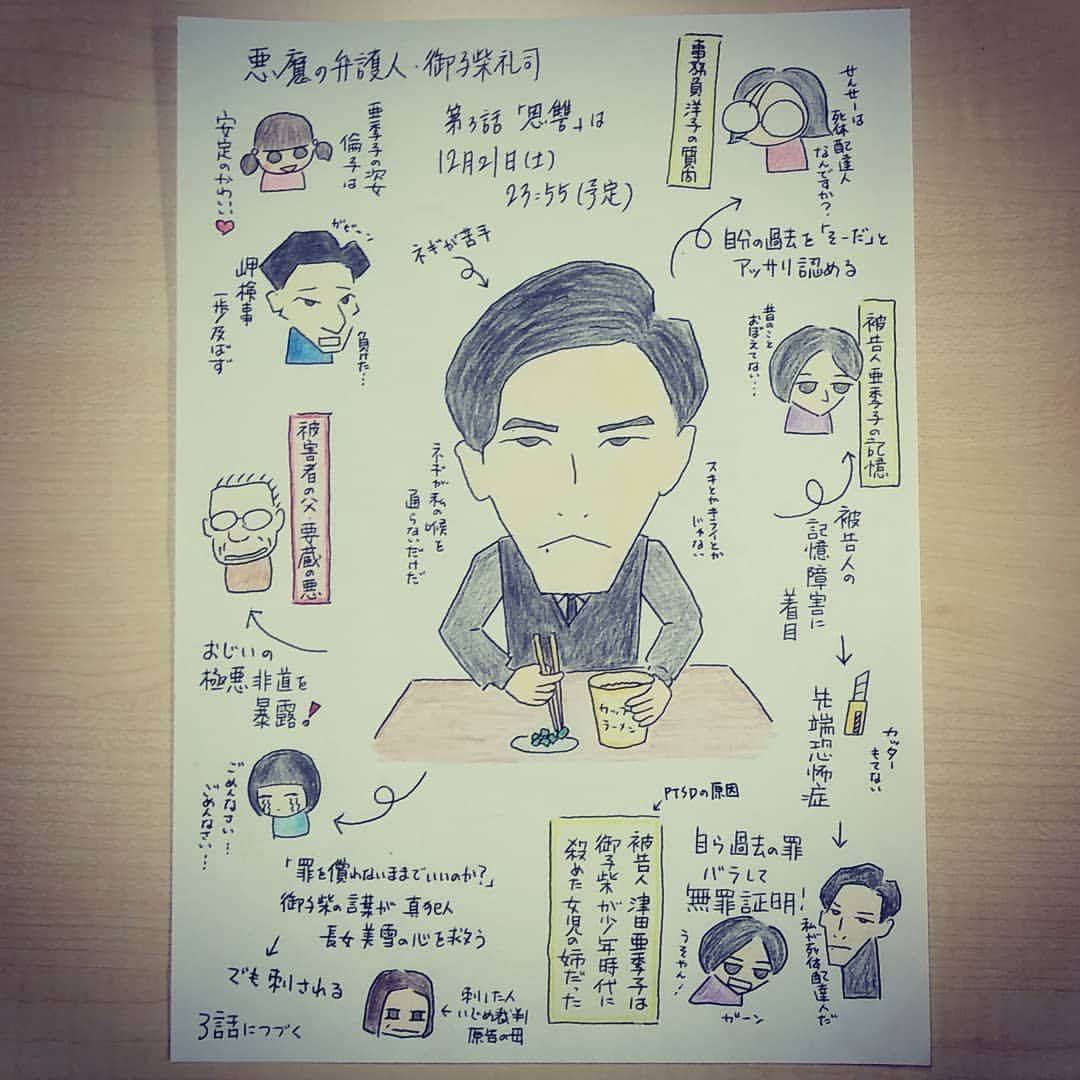 悪魔の弁護人・御子柴礼司
第3話「恩讐」は
12月21日(土)
23:55(予定)
亜季子の次女
倫子は
安定のかわいい
ガビーン
岬検事
一歩及ばず
負けた…
被害者の父・要蔵の悪
おじいの
極悪非道を
暴露!
ネギが苦手
ネギが私の喉を
通らないだけだ
スキとかキライとか
じゃない
カップ
ラーメン
事務員洋子の質問
せんせーは
死体配達人
なんですか?
自分の過去を「そーだ」と
アッサリ認める
被告人亜季子の記憶
昔のこと
おぼえてない…
被告人の
記憶障害に
着目
先端恐怖症
カッター
もてない
自ら過去の罪
バラして
無罪証明!
私が死体配達人だ
うそやん!
ガーン
PTSDの原因
被告人 津田亜季子は
御子柴が少年時代に
殺めた女児の姉だった
ごめんなさい…
ごめんなさい…
「罪を償わないままでいいのか?」
御子柴の言葉が 真犯人
長女美雪の心を救う
でも刺される
刺した人
いじめ裁判
原告の母
3話につづく